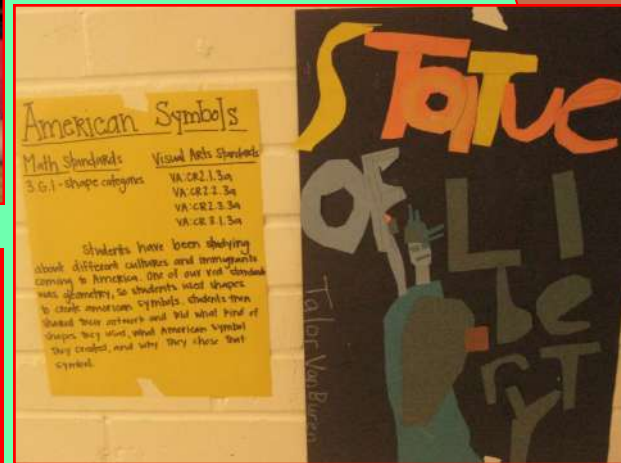 American Symbols
Math Standards
3.G.1 - shape categories
Visual Arts Standards
VA:CR2.1.3a
VA:CR2.2.3a
VA:CR2.3.3a
VA:CR3.1.3a
Students have been studying
about different cultures and immigrants
coming to America. One of our standards
was geometry, so students used shapes
to create american symbols. Students then
shared their artwork and told what kind of
shapes they used, what American symbol
they created, and why they chose that
symbol.
STaTue
OF LIberTY
Talor VanBuren